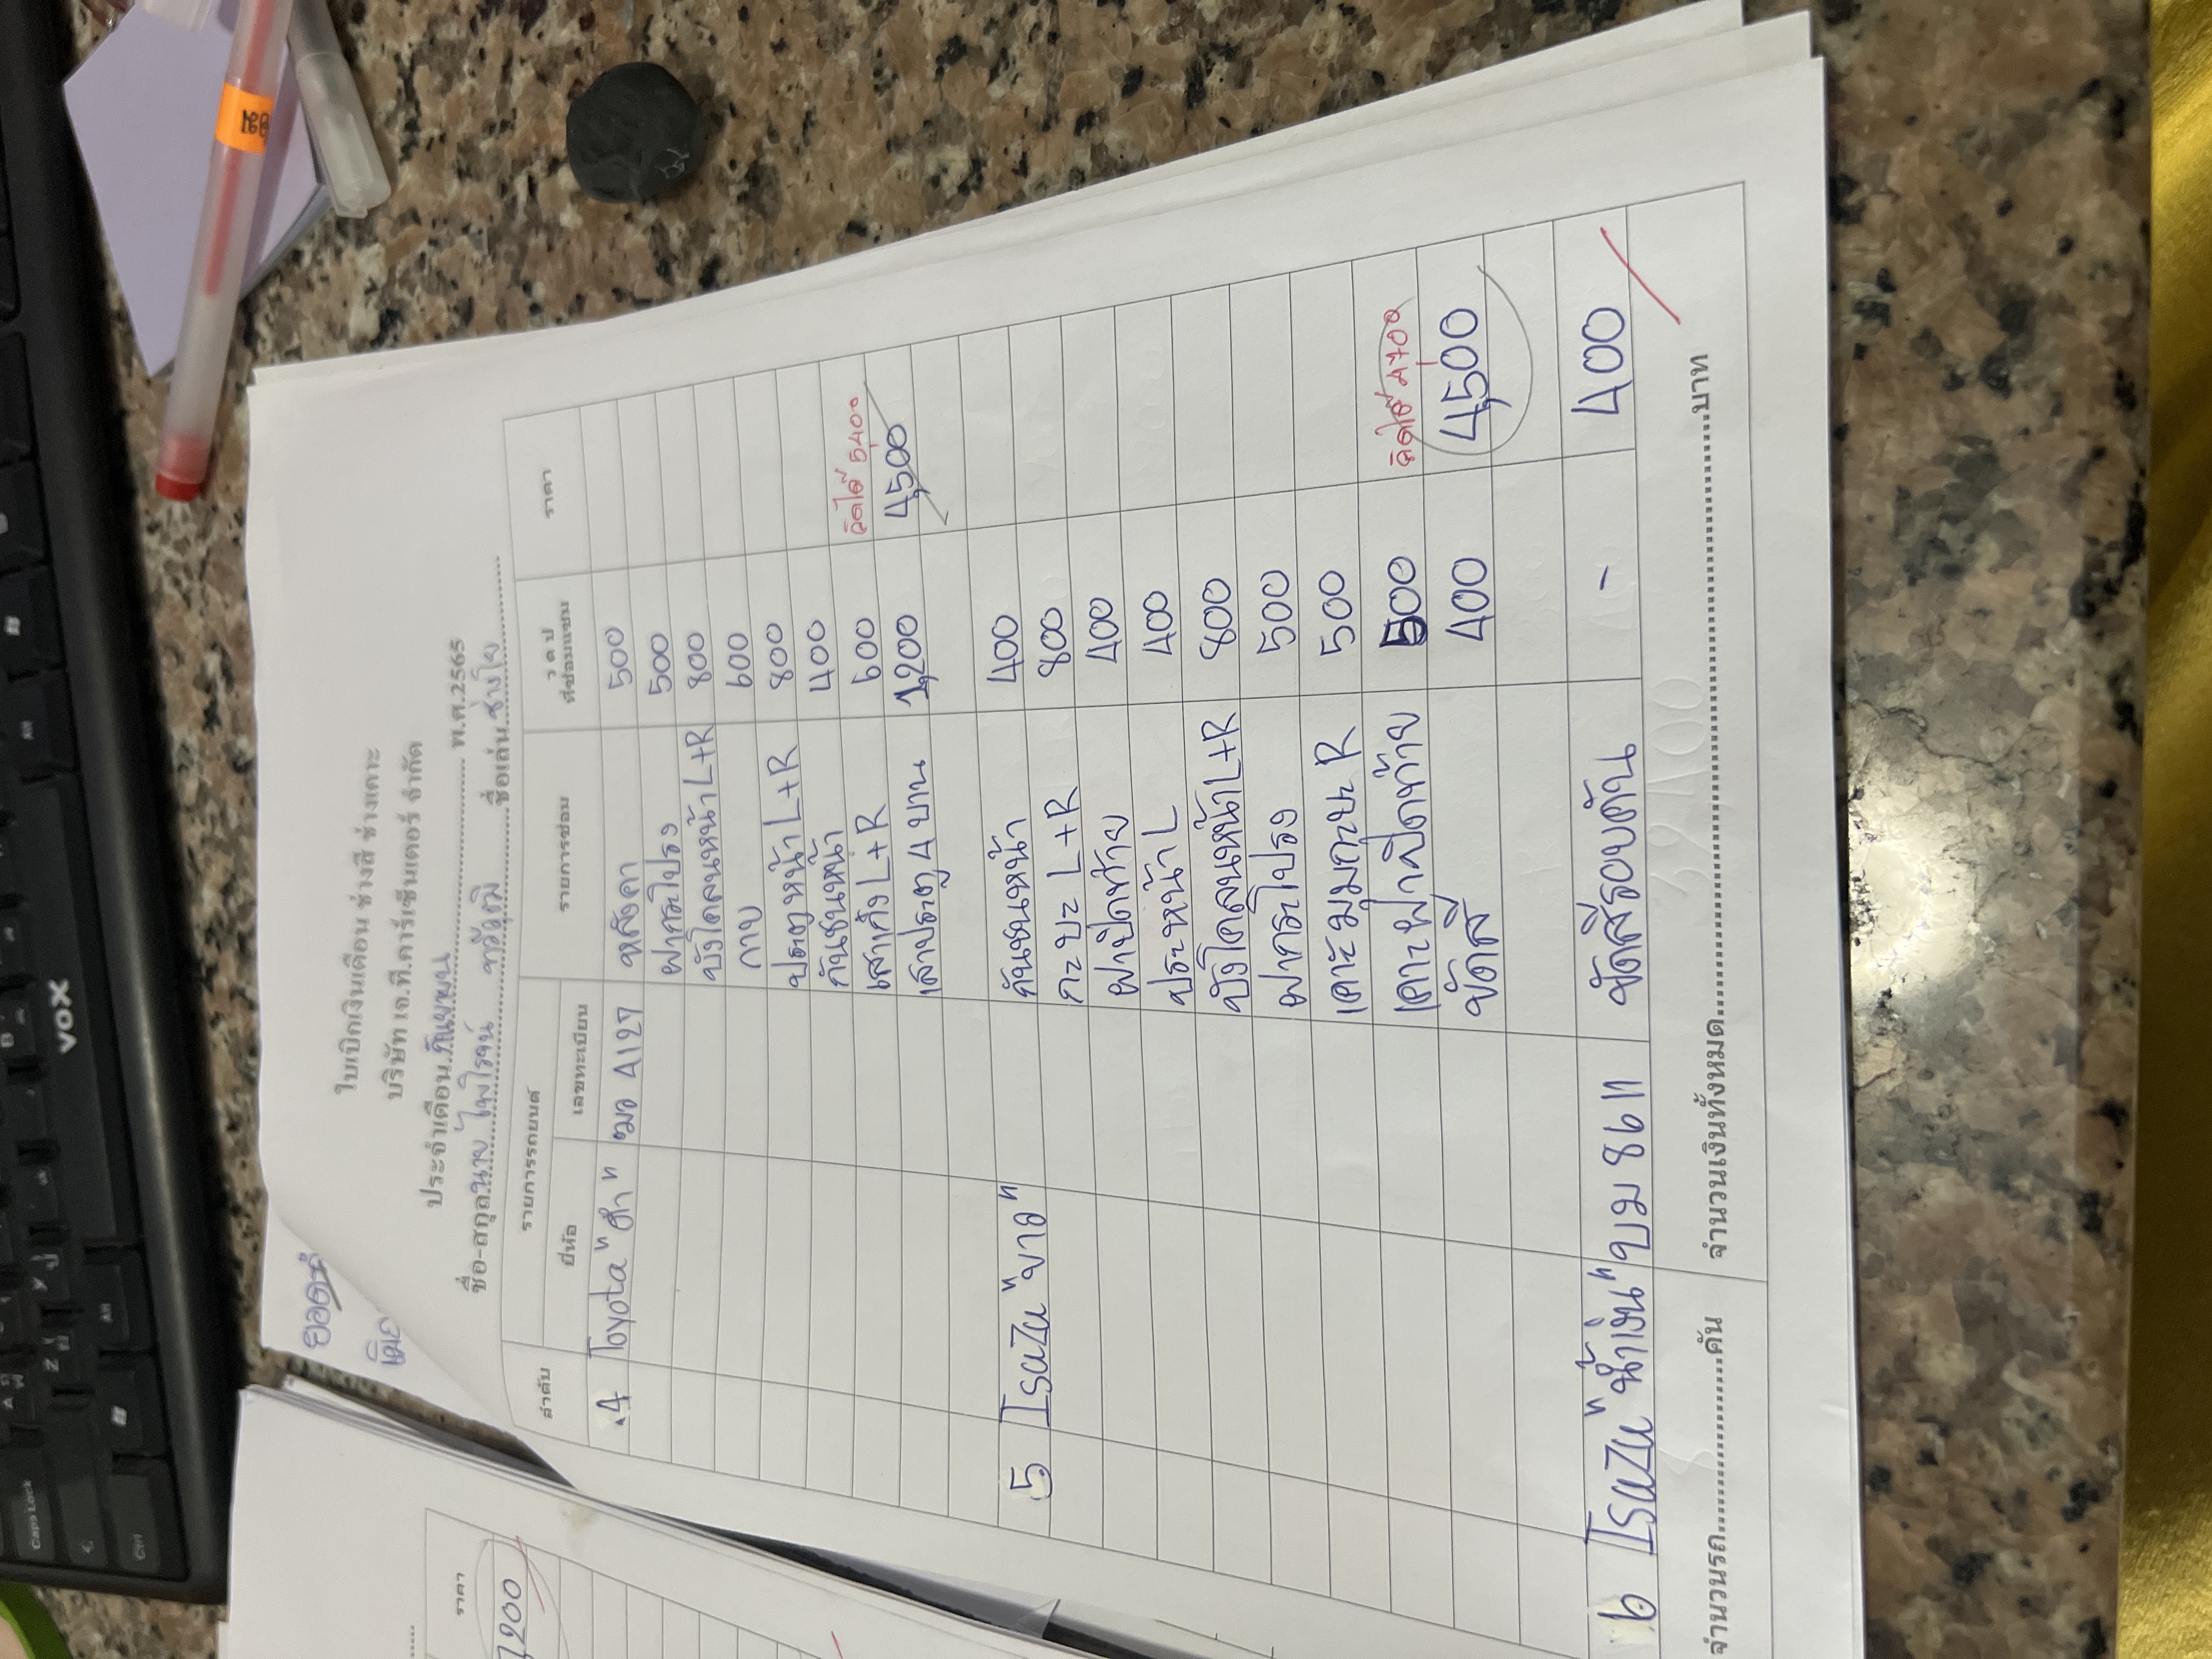 ใบเบิกเงินเดือน ช่างสี ช่างเคาะ
บริษัท เจ.ที.คาร์เซ็นเตอร์ จำกัด
ประจำเดือน กันยายน พ.ศ.2565
ชื่อ-สกุล นาย ไพโรจน์ ชื่อเล่น ช่างโย
ลำดับ รายการรถยนต์ รายการซ่อม ว ด ป ที่ซ่อมแซม ราคา
ยี่ห้อ เลขทะเบียน
4 Toyota "ดำ" ฆอ 4127 หลังคา 500
ฝากระโปรง 500
บังโคลนหน้า L+R 800
กาบ 600
ปตตูหน้า L+R 800
กันชนหน้า 400
เสาเก๋ง L+R 600 คิดได้ 5,400
เสาประตู 4 บาน 1,200 4,500
5 Isuzu "ขาว" กันชนหน้า 400
กะบะ L+R 800
ฝาปิดท้าย 400
ประหน้า L 400
บังโคลนหน้า L+R 800
ฝากระโปรง 500
เคาะมุมกะบะ R 500
เคาะฝาปิดท้าย 500 คิดได้ 4,700
ขัดสี 400 4,500
6 Isuzu "น้ำเงิน" บม 8611 ขัดสีรอบคัน - 400
จำนวนรถ คัน จำนวนเงินทั้งหมด บาท
39,100
ยอด
ราคา
7,200
vox
Caps Lock
Ctrl
Alt